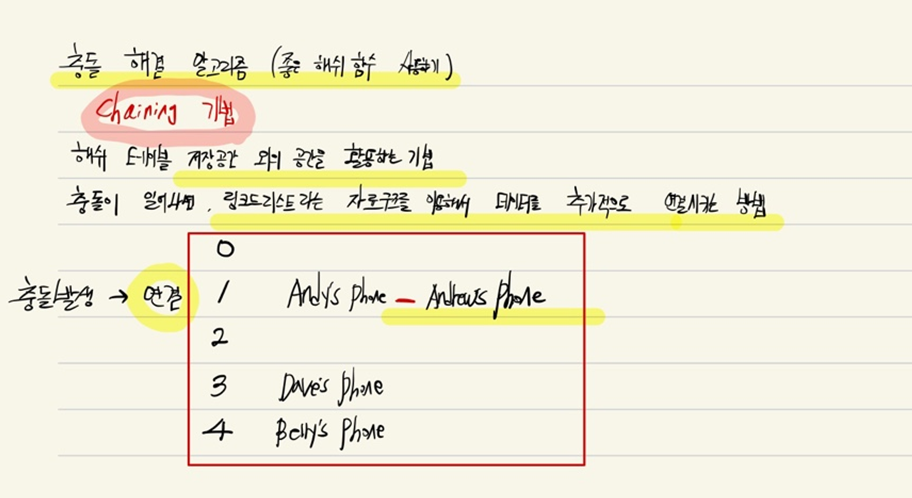 충돌 해결 알고리즘 (좋은 해쉬 함수 사용하기)
Chaining 기법
해쉬 테이블 저장공간 외의 공간을 활용하는 기법
충돌이 일어나면, 링크드리스트라는 자료구조를 이용해서 데이터를 추가적으로 연결시키는 방법
0
충돌발생 → 연결 1 Andy's phone - Andrew's phone
2
3 Dave's phone
4 phone